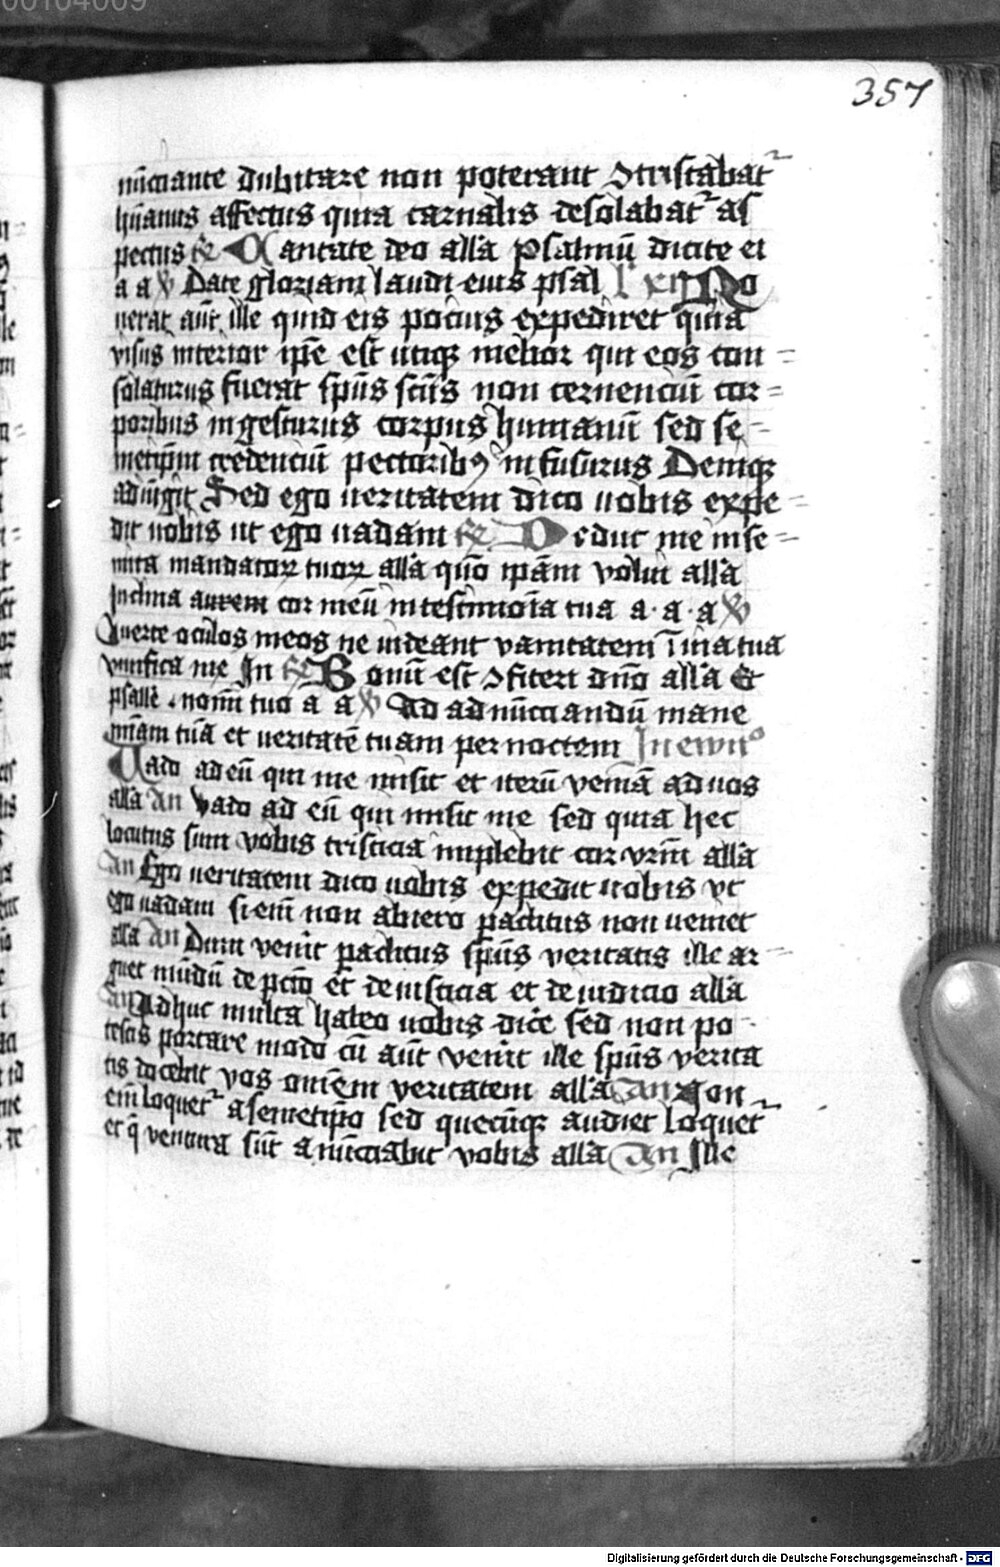 00104009
357
nũciante dubitare non poterant ɔtristabat᷑
hũanus affectus quia carnalis desolabat᷑ as
pectus R̃ Cantate deo alla Psalmũ dicite ei
a a V̾ Date gloriam laudi eius psal l' xij No
uerat aũt ille quid eis pocius expediret quia
visus interior ip̃e est utiqꝫ melior qui eos con =
solaturus fuerat sp̃us sc̃us non cernenciũ cor =
poribus ingesturus corpus humanũ sed se =
metip̃m credenciũ pectoribꝰ infusurus Deniqꝫ
adiũgit Sed ego ueritatem dico uobis expe =
dit uobis ut ego uadam R̃ Deduc me in se =
mita mandatoꝝ tuoꝝ alla qm̃ ip̃am volui alla
Inclina aurem cor meũ in testimonia tua a · a · a V̾
Auerte oculos meos ne uideant vanitatem ĩ uia tua
viuifica me In R̃ Bonũ est ɔfiteri dño alla Et
psalle' nomĩ tuo a a V̾ Ad adnũciandũ mane
m̃iam tuã et ueritatẽ tuam per noctem In ewũᵒ
Uado ad eũ qui me misit et iterũ veniã ad uos
alla An Vado ad eũ qui misit me sed quia hec
locutus sum vobis tristicia impleuit cor vrm̃ alla
An Ego ueritatem dico uobis expedit uobis vt
ego uadam si em̃ non abiero paclitus non ueniet
alla An Dum veñit paclitus sp̃us veritatis ille ar =
guet mũdũ de pctõ et de iusticia et de iudicio alla
An Adhuc multa habeo uobis dic̾e sed non po =
testis portare modo cũ aũt veñit ille sp̃us verita
tis docebit vos om̃em veritatem alla An Non
em̃ loquet᷑ a semetip̃o sed quecũqꝫ audiet loquet᷑
et q̃ ventura sũt anũciabit vobis alla An Ille
Digitalisierung gefördert durch die Deutsche Forschungsgemeinschaft - DFG